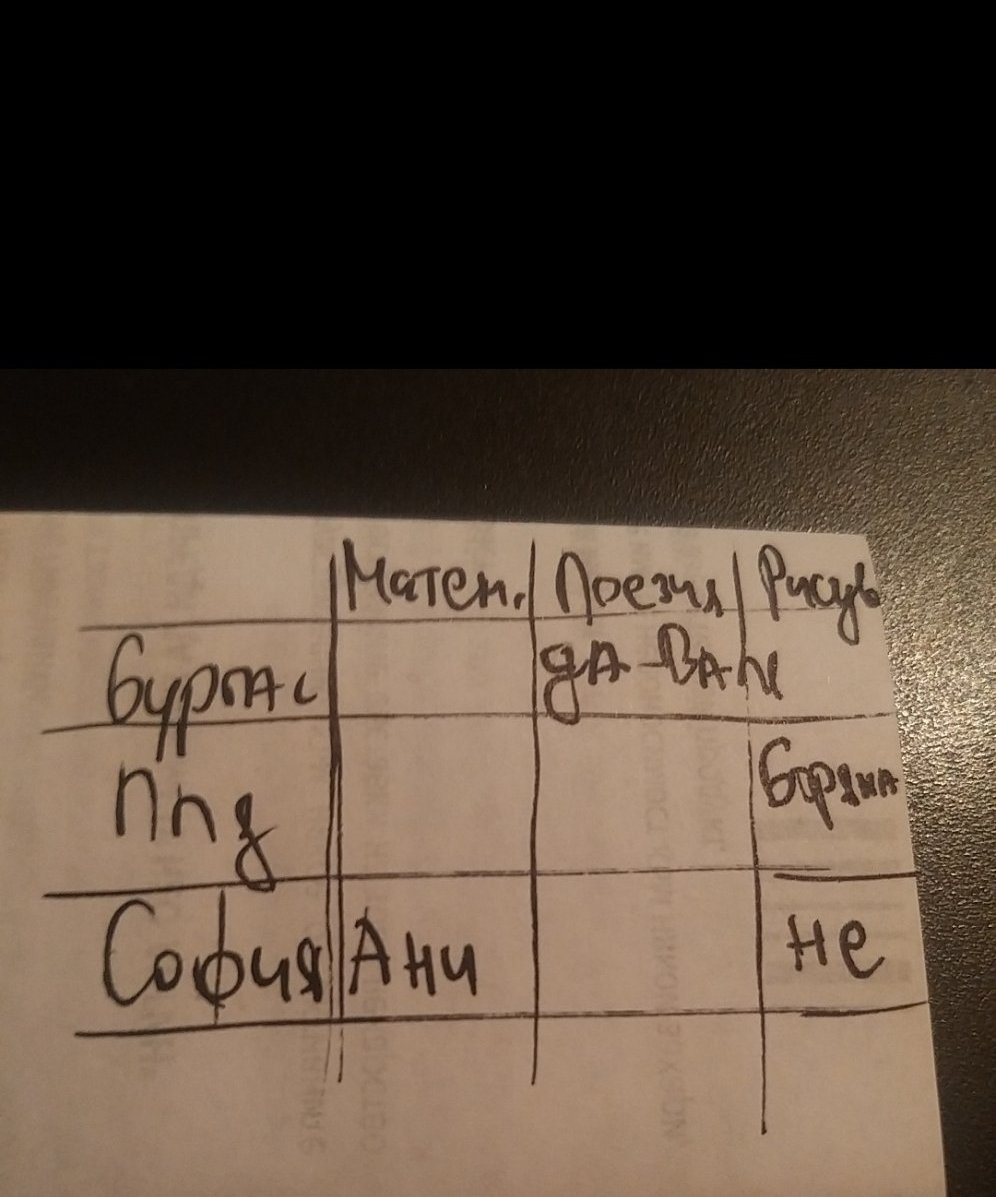 Матем. Поезия Рисув
Бургас да - Вани
ППд Боряна
София Ани не